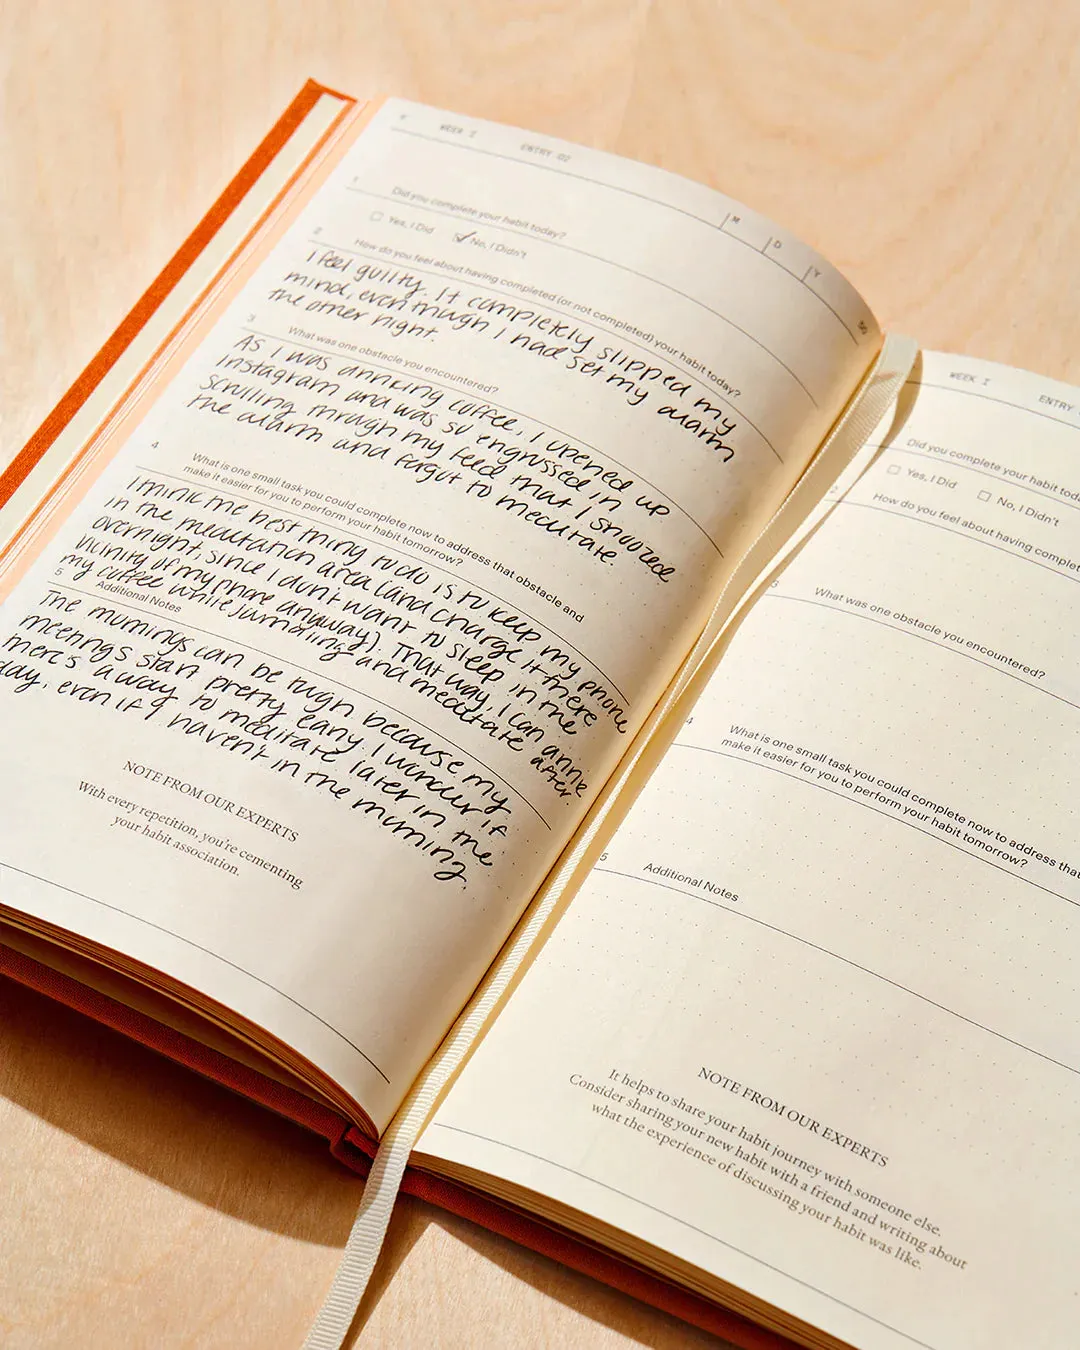 WEEK I
ENTRY 02
M D Y
1 Did you complete your habit today?
Yes, I Did No, I Didn't
2 How do you feel about having completed (or not completed) your habit today?
I feel guilty. It completely slipped my
mind, even though I had set my alarm
the other night.
3 What was one obstacle you encountered?
As I was drinking coffee, I opened up
instagram and was so engrossed in
scrolling through my feed that I snoozed
the alarm and forgot to meditate.
4 What is one small task you could complete now to address that obstacle and
make it easier for you to perform your habit tomorrow?
I think the best thing to do is to keep my phone
in the meditation area (and charge it there
overnight, since I don't want to sleep in the
vicinity of my phone anyway). That way, I can drink
my coffee while journaling and meditate after.
5 Additional Notes
The mornings can be rough because my
meetings start pretty early. I wonder if
there's a way to meditate later in the
day, even if I haven't in the morning.
NOTE FROM OUR EXPERTS
With every repetition, you're cementing
your habit association.
50
WEEK I
ENTRY
Did you complete your habit toda
Yes, I Did No, I Didn't
2 How do you feel about having complet
3 What was one obstacle you encountered?
4 What is one small task you could complete now to address that
make it easier for you to perform your habit tomorrow?
5 Additional Notes
NOTE FROM OUR EXPERTS
It helps to share your habit journey with someone else.
Consider sharing your new habit with a friend and writing about
what the experience of discussing your habit was like.